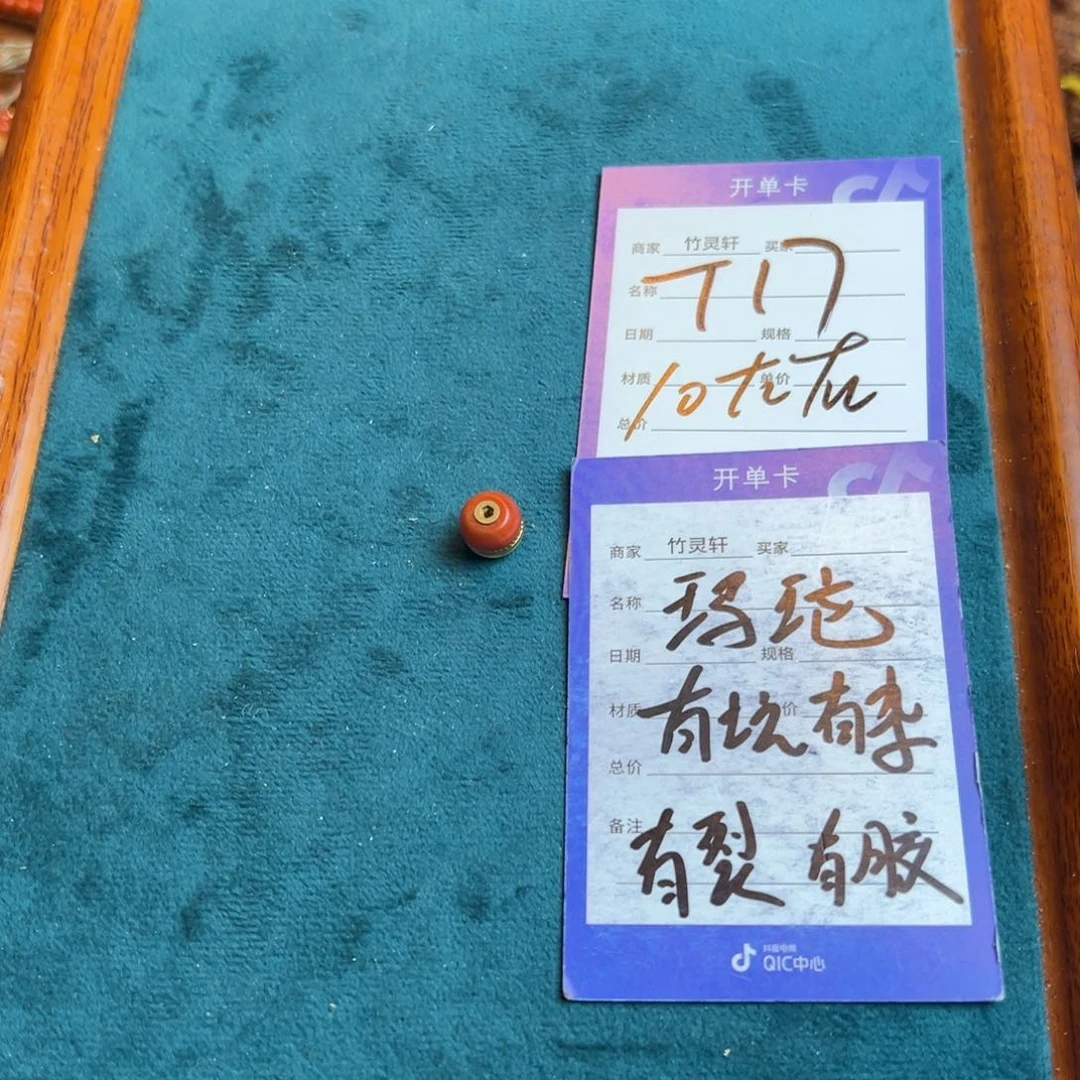 开单卡
商家 竹灵轩 买家
名称
T17
日期 规格
材质 单价
10左右
总价
开单卡
商家 竹灵轩 买家
名称
玛瑙
日期 规格
材质 价
有坑 有李
总价
备注
有裂 有胶
抖音电商
QIC中心